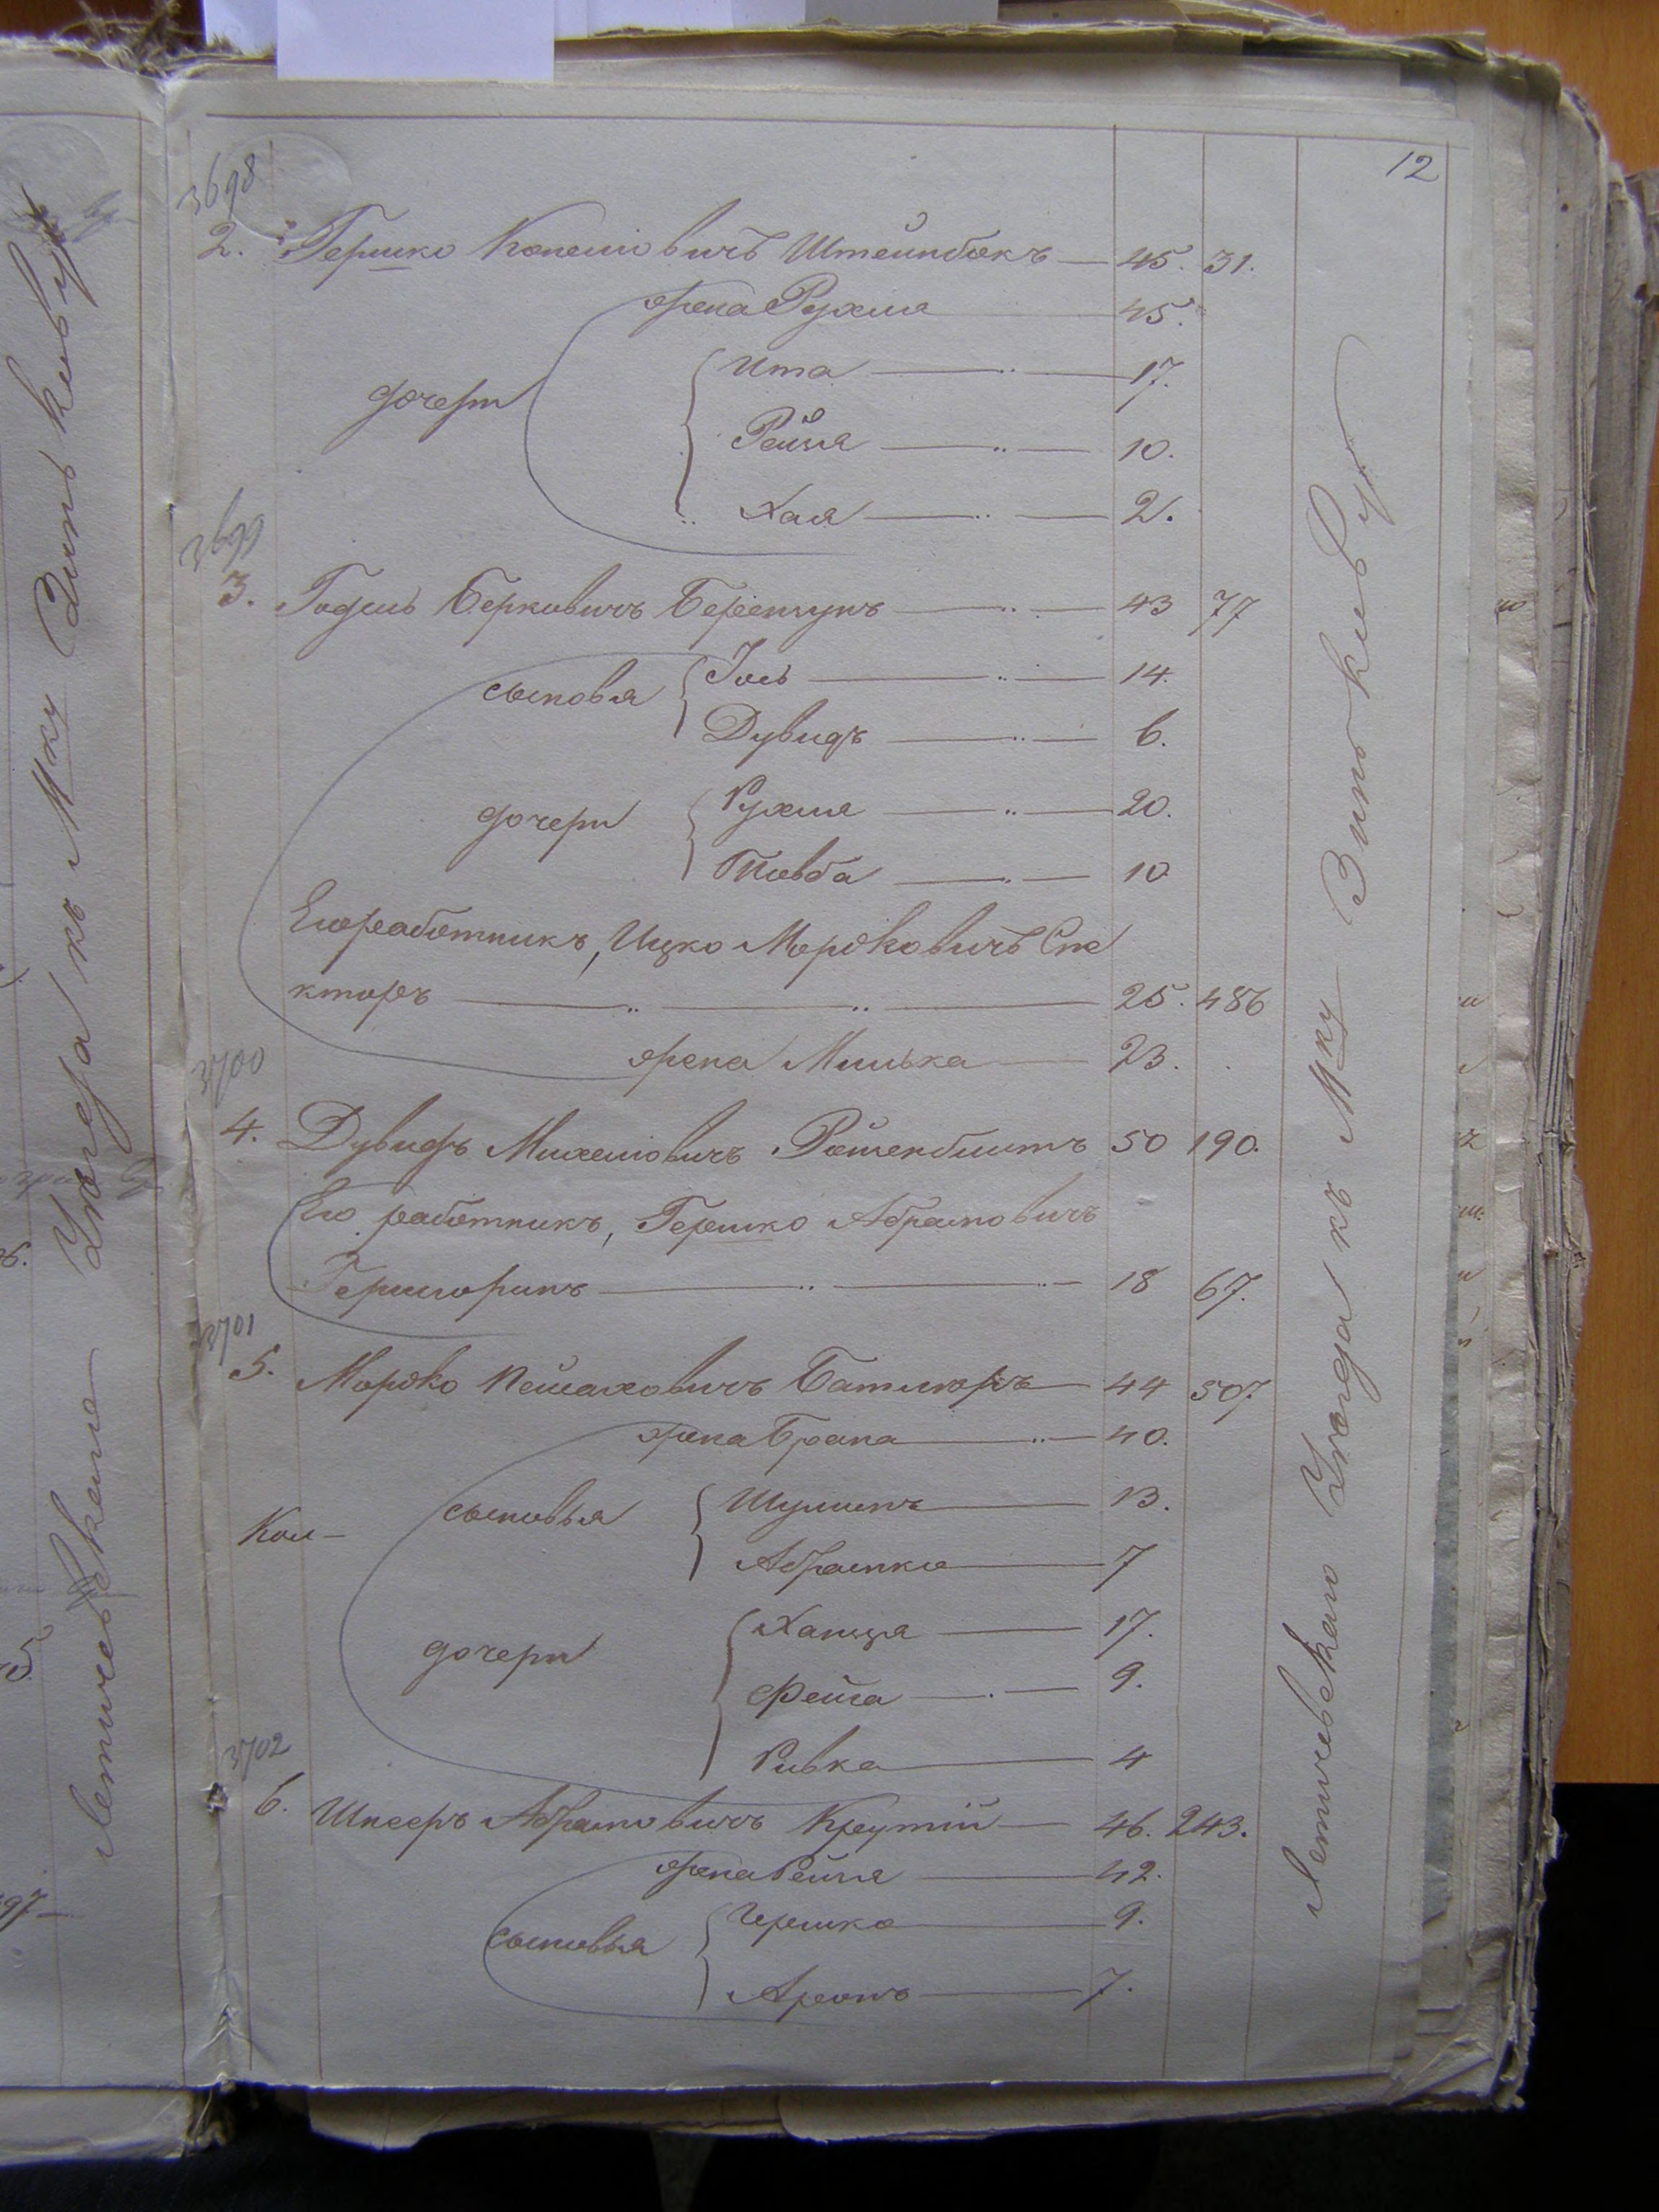 12
3698
2. Гершко Копелювичъ Штейнбокъ — 45. 31.
жена Рухля 45.
дочери
Ита — 17.
Рейзя — 10.
Хая — 2.
3699
3. Годель Берковичъ — 43 77
сыновья
Іось — 14.
Дувидъ — 6.
дочери
Рухля — 20.
Товба — 10
Его работникъ, Ицко Мордковичъ Спе
кторъ — 25. 486
жена Милька — 23.
3700
4. Дувидъ Михелювичъ Ройзенблитъ 50 190.
Его работникъ, Гершко Абрамовичъ
Гершгоринъ — 18 67.
3701
5. Мордко Пейсаховичъ — 44 507.
жена Брана — 40.
Кол—
сыновья
Шулимъ — 13.
Абрамко — 7
дочери
Ханця — 17.
Фейга — 9.
Ривка — 4
3702
6. Шнееръ Абрамовичъ Крутій — 46. 243.
жена Рейзя — 42.
сыновья
Гершко — 9.
Аронъ — 7.
Летичевскаго Уезда къ Мку Зиньковцу